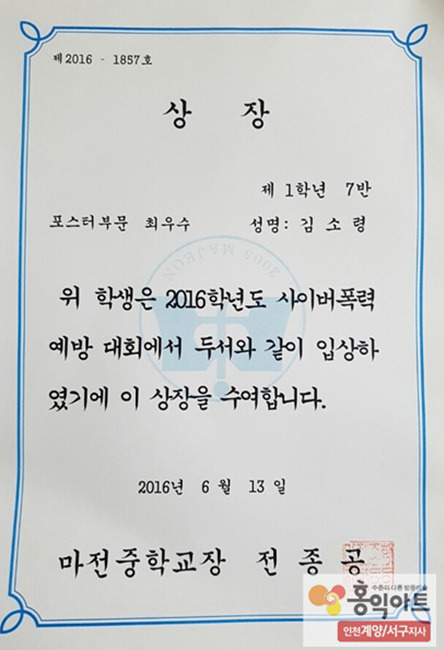 제2016 - 1857호
상 장
제 1학년 7반
포스터부문 최우수 성명: 김 소 령
2002 MAJEON
위 학생은 2016학년도 사이버폭력
예방 대회에서 두서와 같이 입상하
였기에 이 상장을 수여합니다.
2016년 6월 13일
마전중학교장 전 종 공
수준이 다른 방문미술
홍익아트
인천계양/서구지사